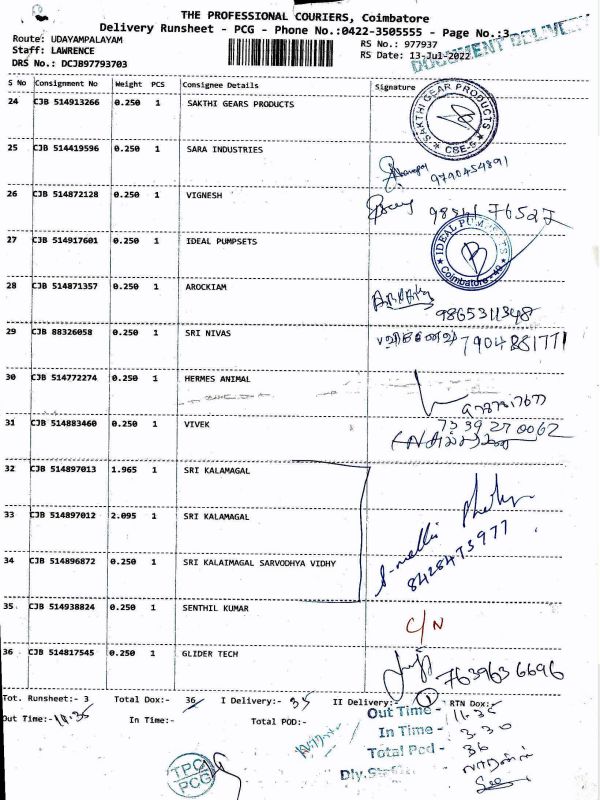 THE PROFESSIONAL COURIERS, Coimbatore
Delivery Runsheet - PCG - Phone No.:0422-3505555 - Page No.:3
Route: UDAYAMPALAYAM
RS No.: 977937
Staff: LAWRENCE
RS Date: 13-Jul-2022
DOCUMENT DELIVERY
DRS No.: DCJB97793703
S No Consignment No Weight PCS Consignee Details Signature
24 CJB 514913266 0.250 1 SAKTHI GEARS PRODUCTS
SAKTHI GEAR PRODUCTS
CBE-6
25 CJB 514419596 0.250 1 SARA INDUSTRIES
9790454891
26 CJB 514872128 0.250 1 VIGNESH
27 CJB 514917601 0.250 1 IDEAL PUMPSETS
IDEAL PUMPSETS
Coimbatore
28 CJB 514871357 0.250 1 AROCKIAM
9865311348
29 CJB 88326058 0.250 1 SRI NIVAS 7904881771
30 CJB 514772274 0.250 1 HERMES ANIMAL
31 CJB 514883460 0.250 1 VIVEK 7339270062
32 CJB 514897013 1.965 1 SRI KALAMAGAL
33 CJB 514897012 2.095 1 SRI KALAMAGAL
8428473977
34 CJB 514896872 0.250 1 SRI KALAIMAGAL SARVODHYA VIDHY
35 CJB 514938824 0.250 1 SENTHIL KUMAR C/N
36 CJB 514817545 0.250 1 GLIDER TECH 7639636696
Tot. Runsheet:- 3 Total Dox:- 36 I Delivery:- 35 II Delivery:- 1 RTN Dox:-
Out Time:- In Time:- Total POD:-
Out Time - 11.35
In Time - 3.30
Total Pod - 36
TPC
PCG